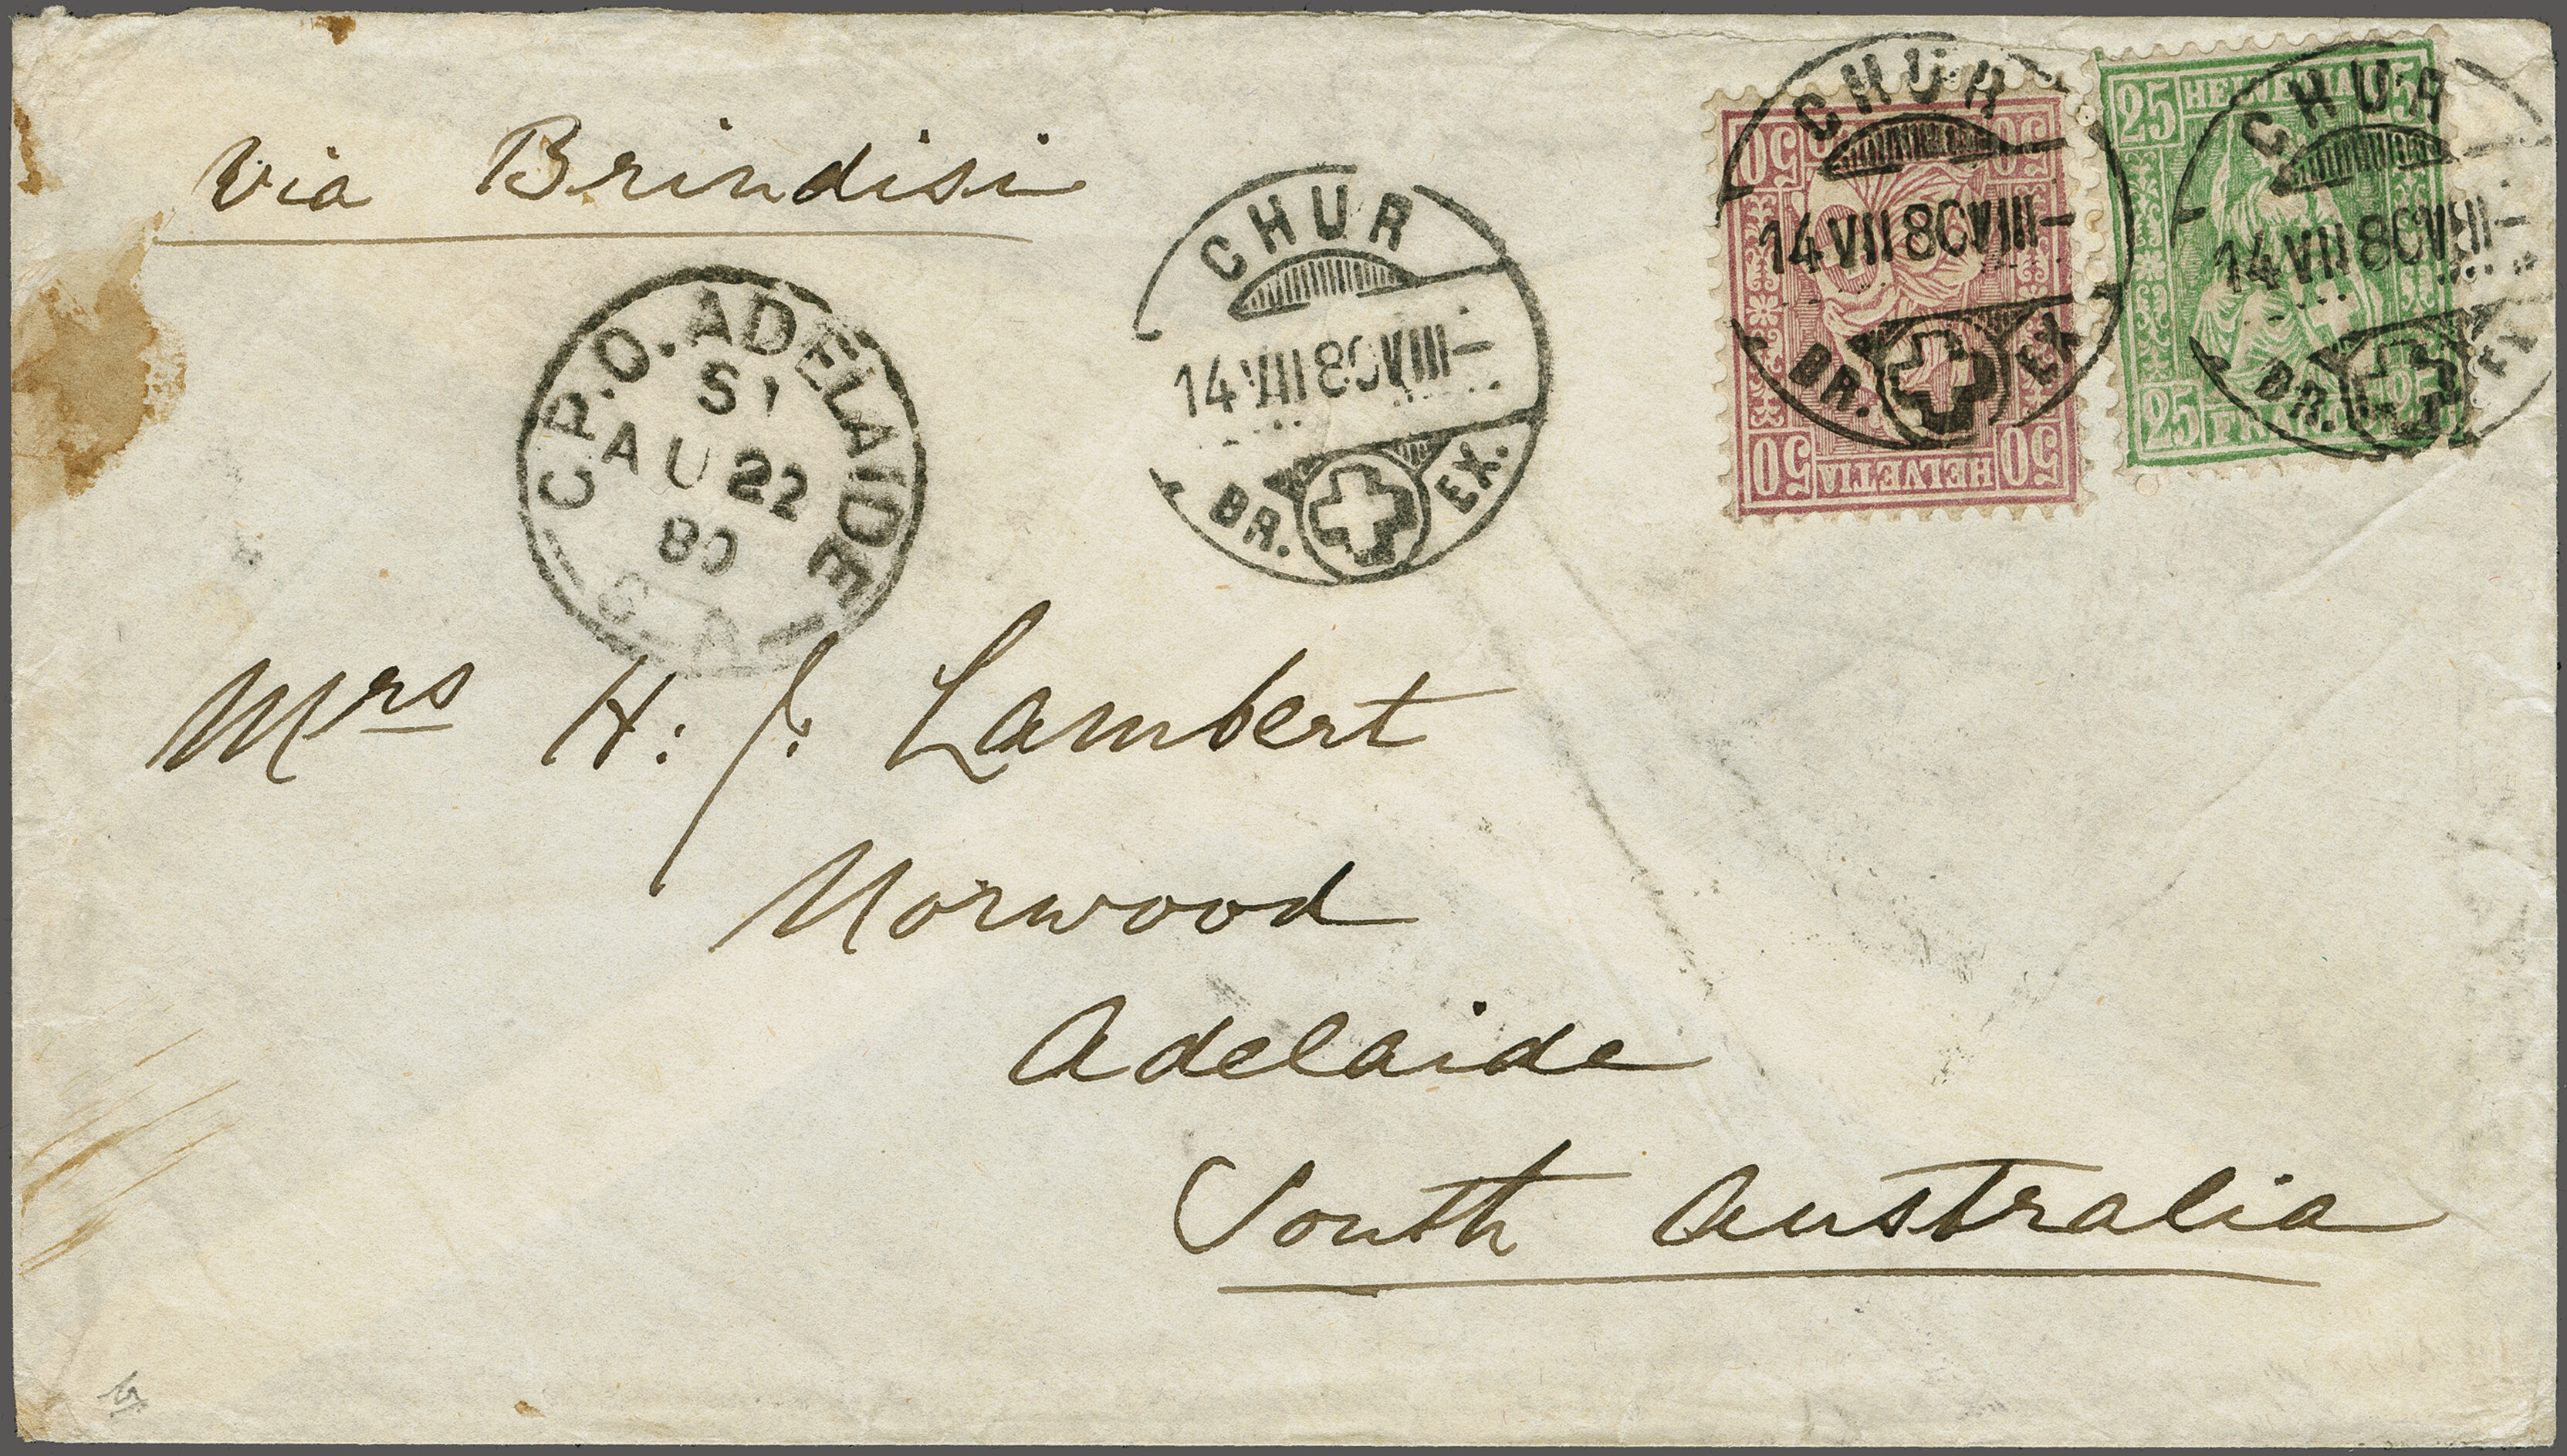 via Brindisi
G.P.O. ADELAIDE
S1
AU 22
80
S. A
CHUR
14 VII 80 VIII–
BR. EX.
50 50
HELVETIA
50 50
CHUR
14 VII 80 VIII–
BR. EX.
25 HELVETIA 25
25 FRANCO 25
CHUR
14 VII 80 VIII–
BR. EX.
Mrs H: J: Lambert
Norwood
Adelaide
South Australia